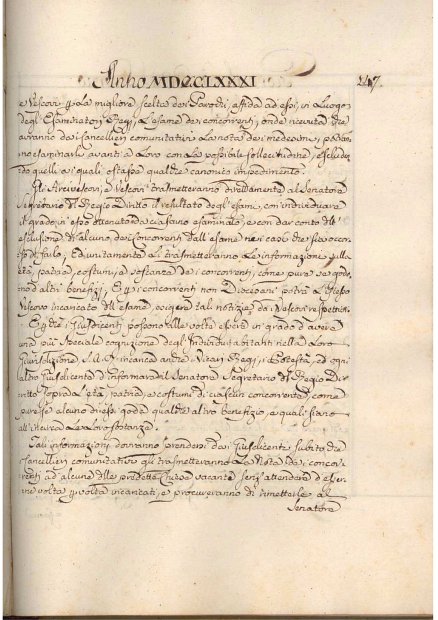 Anno MDCCLXXXI 247.
e Vescovi p la migliore scelta dei Parochi, affida ad essi, in Luogo
degl' Esaminatori Regj, L'esame dei concorrenti, onde ricevuta che
avranno dai Cancellieri comunitativi La nota dei medesimi, potran-
no esaminarli avanti a Loro con La possibile sollecitudine, escluden-
do quelli a' quali ostasse qualche canonico impedimento.
Gli Arcivescovi, e Vescovi trasmetteranno direttamente al Senatore
Segretario di Regio Diritto il resultato degl' esami, con individuare
il grado in esso ottenuto da ciascuno esaminato, e con dar conto dell'
esclusione di alcuno dei concorrenti dall' esame nei casi che sia occor-
so di farlo, ed unitamente Li trasmetteranno Le informazioni sull'
età, patria, costumi, e sostanze dei concorrenti, come pure se godo-
no d' altri benefizj, E p i concorrenti non Diocesani potrà L' istesso
Vescovo incaricato dell' esame, esigere tali notizie dai Vescovi respettivi.
E p che i Giusdicenti possono alle volte essere in grado d' avere
una più speciale cognizione degl' Individui abitanti nella Loro
Giurisdizione S. A. R. incarica anche i Vicarj Regj, i Potestà, ed ogni
altro Giusdicente d' informare il Senatore Segretario del Regio Di-
ritto sopra L' età, patria, e costumi di ciascun concorrente, come
pure se alcuno di essi goda qualche altro benefizio, e quali siano
all' incirca Le Loro sostanze.
Tali informazioni dovranno prendersi dai Giusdicenti subito che
i Cancellieri comunitativi gli trasmetteranno La Nota dei concor-
renti ad alcune delle predette Chiese vacanti senz' attendere d' esser-
ne volta p volta incaricati, e procureranno di rimetterle al
Senatore